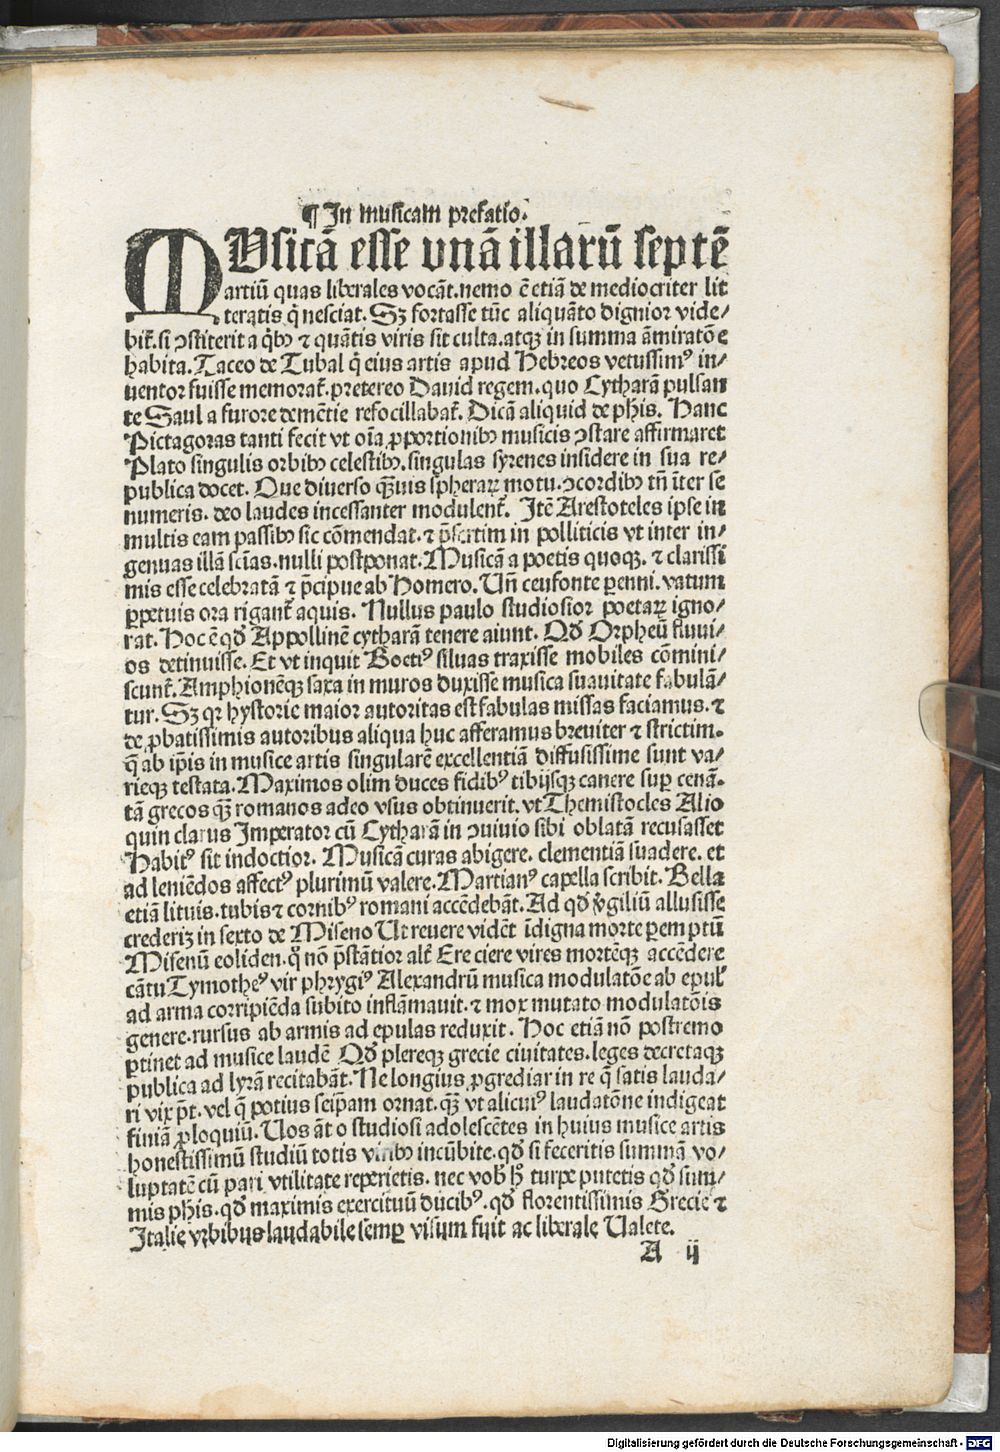 ¶ In musicam prefatio.
MVsicā esse vnā illarū septē
artiū quas liberales vocāt. nemo ē etiā de mediocriter lit
teratis q̄ nesciat. Sꝫ fortasse tūc aliquāto dignior vide⸗
bit̄. si ↄstiterit a q̄bꝰ ⁊ quātis viris sit culta. atqꝫ in summa āmiratōe
habita. Taceo de Tubal q̄ eius artis apud Hebreos vetussimꝰ in⸗
uentor fuisse memorat̄. pretereo Dauid regem. quo Cytharā pulsan
te Saul a furore demētie refocillabat̄. Dicā aliquid de phis. Hanc
Pictagoras tanti fecit vt oīa ꝓportionibꝰ musicis ↄstare affirmaret
Plato singulis orbibꝰ celestibꝰ. singulas syrenes insidere in sua re⸗
publica docet. Que diuerso qꝫuis spherarꝝ motu. ↄcordibꝰ tn̄ īter se
numeris. deo laudes incessanter modulent̄. Itē Arestoteles ipse in
multis eam passibꝰ sic cōmendat. ⁊ p̄sertim in polliticis vt inter in⸗
genuas illā scīas. nulli postponat. Musicā a poetis quoqꝫ. ⁊ clarissi
mis esse celebratā ⁊ p̄cipue ab Homero. Un̄ ceu fonte ꝑenni. vatum
ꝑpetuis ora rigant̄ aquis. Nullus paulo studiosior poetarꝝ igno⸗
rat. Hoc ē qd̄ Appollinē cytharā tenere aiunt. Qd̄ Orpheū fluui⸗
os detinuisse. Et vt inquit Boetiꝰ siluas traxisse mobiles cōmini⸗
scunt̄. Amphionēqꝫ saxa in muros duxisse musica suauitate fabulā⸗
tur. Sꝫ qꝛ hystorie maior autoritas est fabulas missas faciamus. ⁊
de ꝓbatissimis autoribus aliqua huc afferamus breuiter ⁊ strictim.
q̄ ab ip̄is in musice artis singularē excellentiā diffusissime sunt va⸗
rieqꝫ testata. Maximos olim duces fidibꝰ tibijsqꝫ canere suꝑ cenā.
tā grecos qꝫ romanos adeo vsus obtinuerit. vt Themistocles Alio
quin clarus Imperator cū Cytharā in ↄuiuio sibi oblatā recusasset
Habitꝰ sit indoctior. Musicā curas abigere. clementiā suadere. et
ad leniēdos affectꝰ plurimū valere. Martianꝰ capella scribit. Bella
etiā lituis. tubis ⁊ cornibꝰ romani accēdebāt. Ad qd̄ v̄giliū allusisse
crederiꝫ in sexto de Miseno Ut reuere vidēt īdigna morte ꝑemptū
Misenū eoliden. qͦ nō p̄stātior alt̄ Ere ciere vires mortēqꝫ accēdere
cātu Tymotheꝰ vir phrygiꝰ Alexandrū musica modulatōe ab epul̄
ad arma corripiēda subito inflāmauit. ⁊ mox mutato modulatōis
genere. rursus ab armis ad epulas reduxit. Hoc etiā nō postremo
ꝑtinet ad musice laudē Qd̄ plereqꝫ grecie ciuitates. leges decretaqꝫ
publica ad lyrā recitabāt. Ne longius ꝓgrediar in re q̄ satis lauda⸗
ri vix pt̄. vel q̄ potius seip̄am ornat. qꝫ vt alicuiꝰ laudatōne indigeat
finiā ꝓloquiū. Uos āt o studiosi adolescētes in huius musice artis
honestissimū studiū totis viribꝰ incūbite. qd̄ si feceritis summā vo⸗
luptatē cū pari vtilitate reperietis. nec vob̄ h̄ turpe putetis qd̄ sum⸗
mis phis. qd̄ maximis exercituū ducibꝰ. qd̄ florentissimis Grecie ⁊
Italie vrbibus laudabile semꝑ visum fuit ac liberale Ualete.
A ij
Digitalisierung gefördert durch die Deutsche Forschungsgemeinschaft - DFG